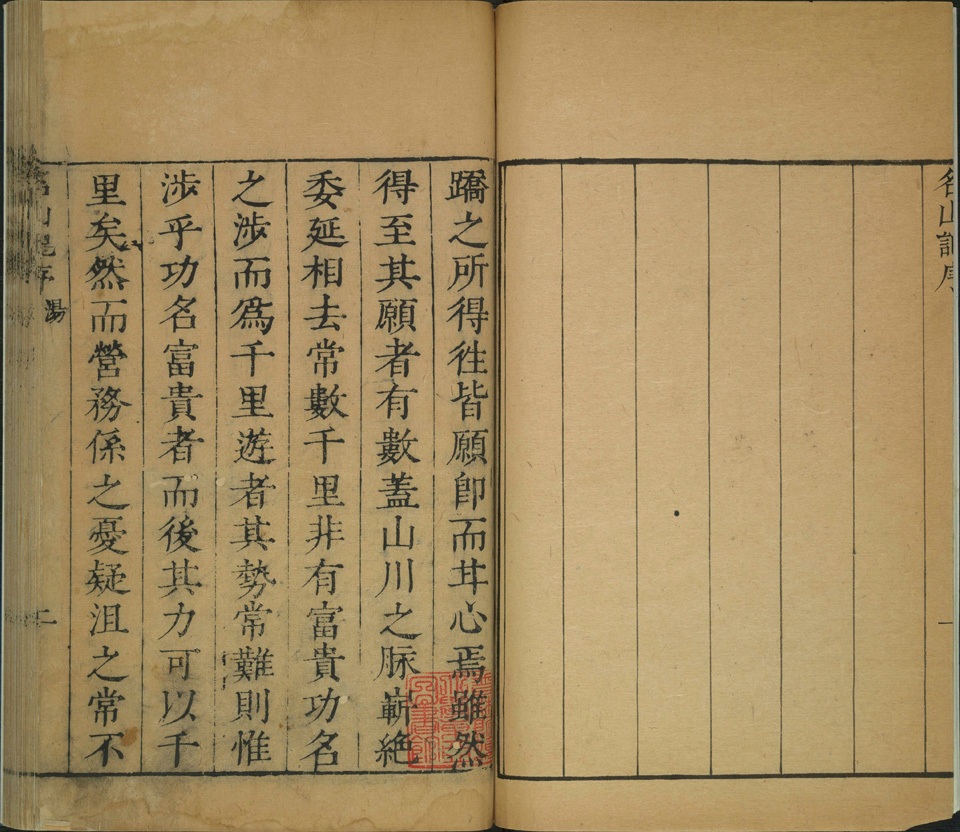 名山記序
蹻之所得徃皆願卽而甘心焉雖然
得至其願者有數蓋山川之脉嶄絶
委延相去常數千里非有富貴功名
之涉而爲千里遊者其勢常難則惟
涉乎功名富貴者而後其力可以千
里矣然而營務係之憂疑沮之常不
名山記序 湯 二